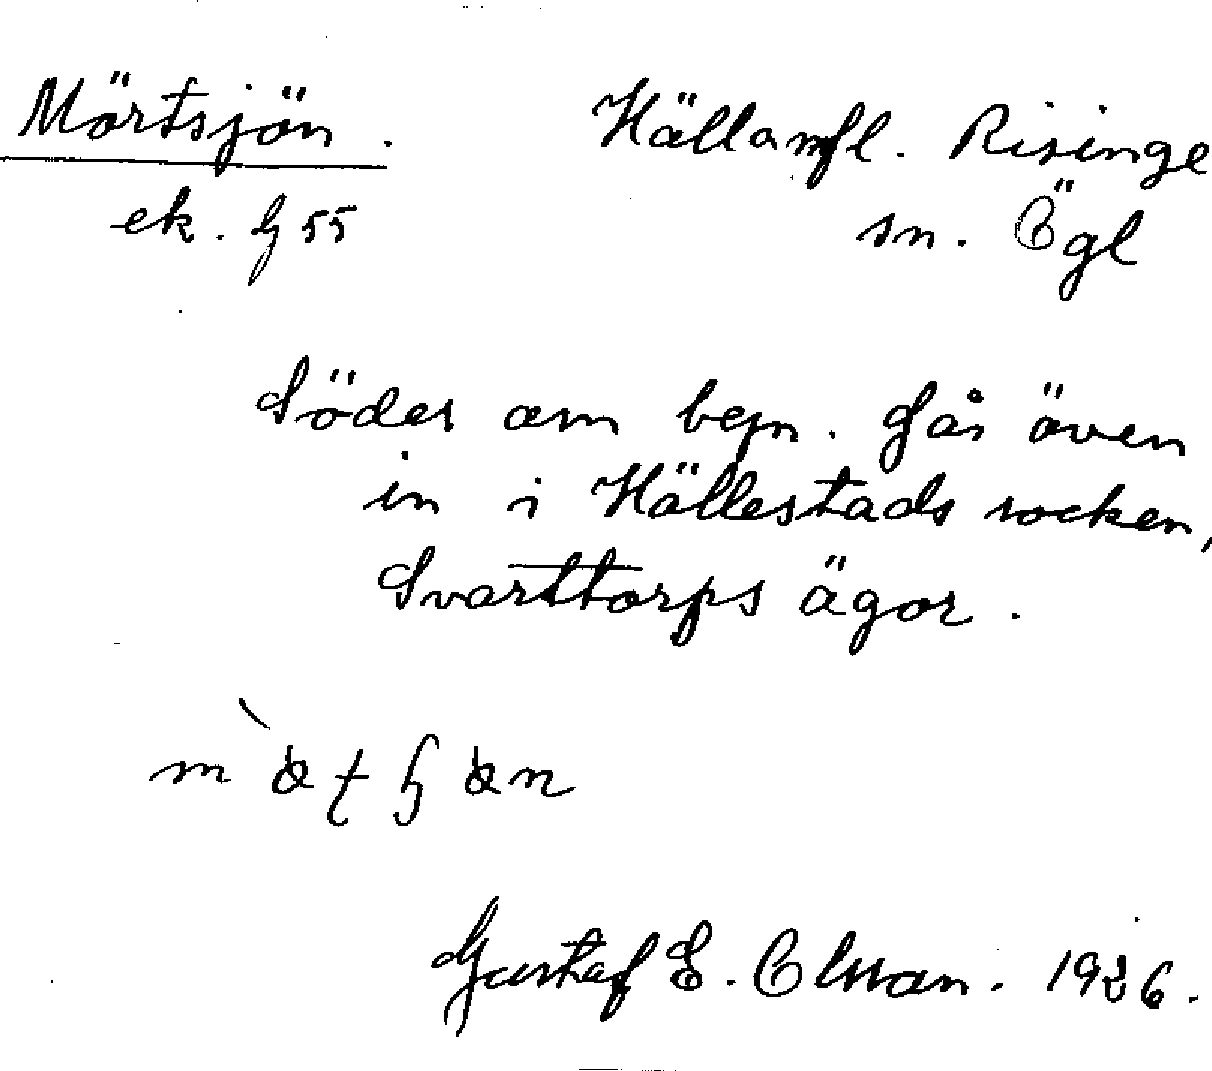 Mörtsjön. Hällamfl. Risinge
ek. h 55 sn. Ögl
Söder om bejn. Går även
in i Hällestads socken,
Svarttorps ägor.
Gustaf E. Olsson. 1926.